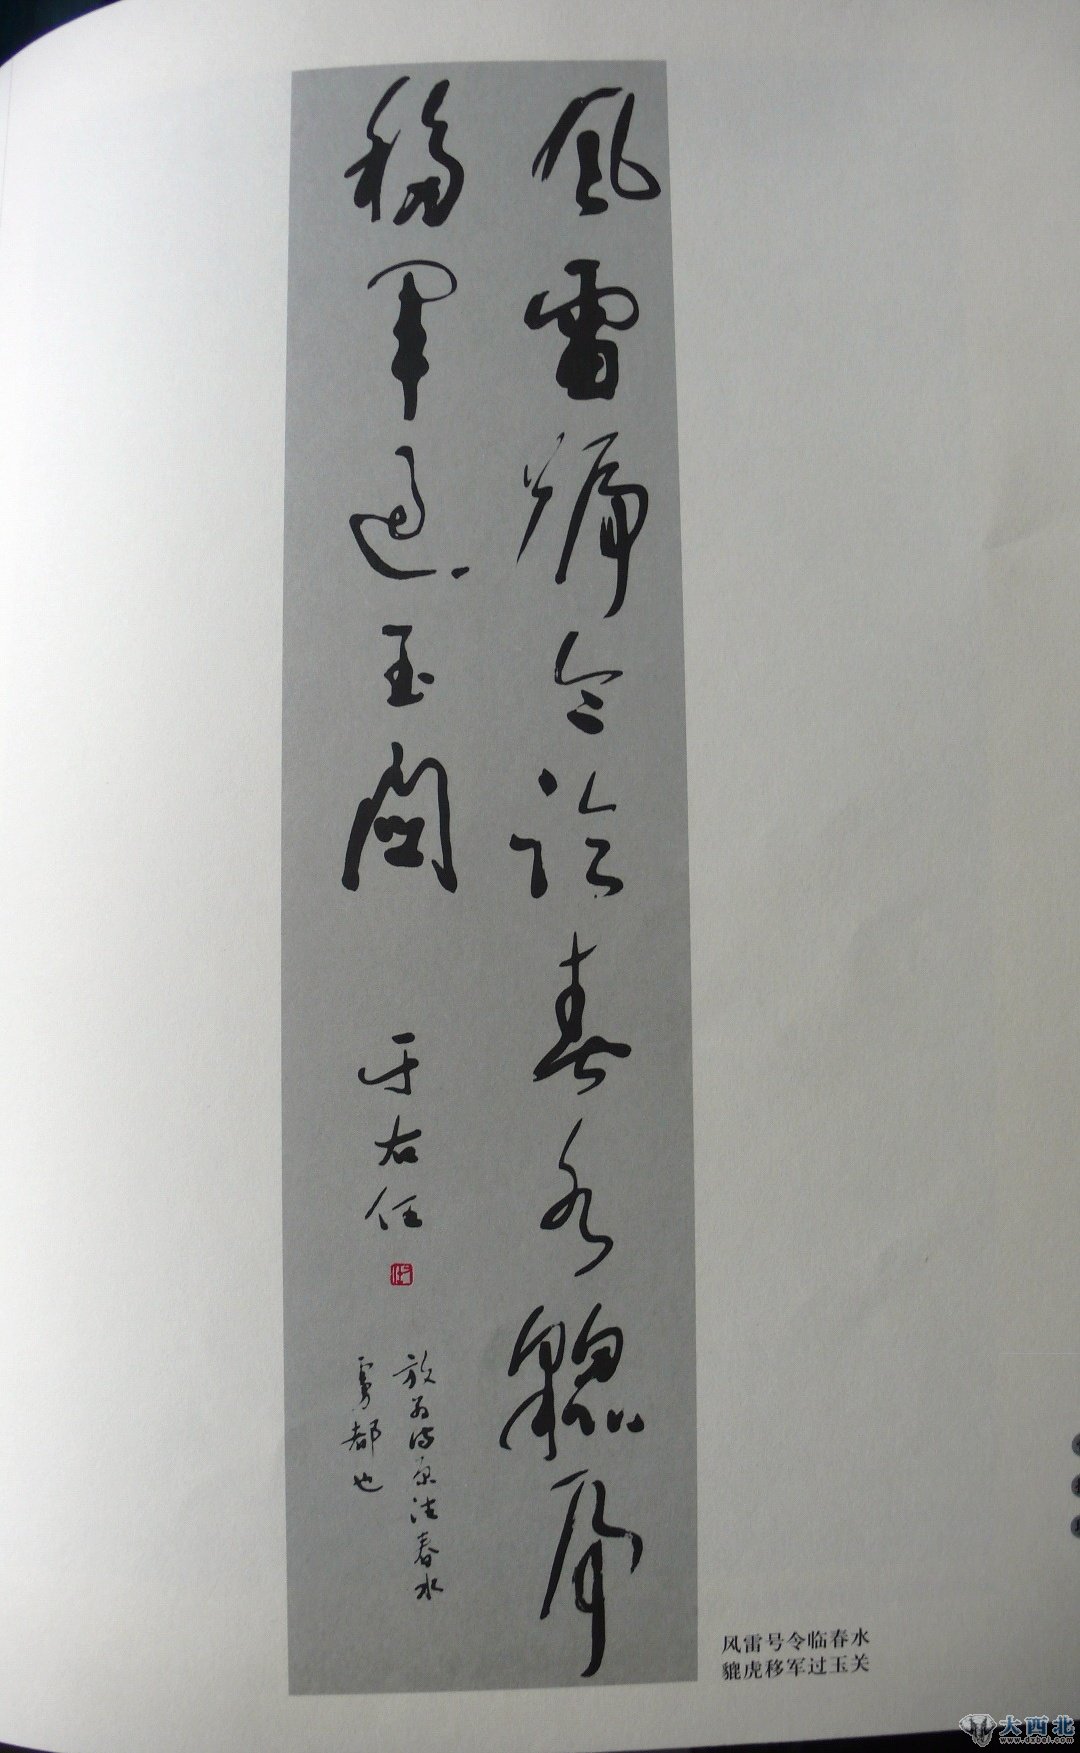 風雷號令臨春水貔虎
移軍過玉關
于右任
放翁詩原注春水
虜都也
风雷号令临春水
貔虎移军过玉关
大西北
www.dxbei.com